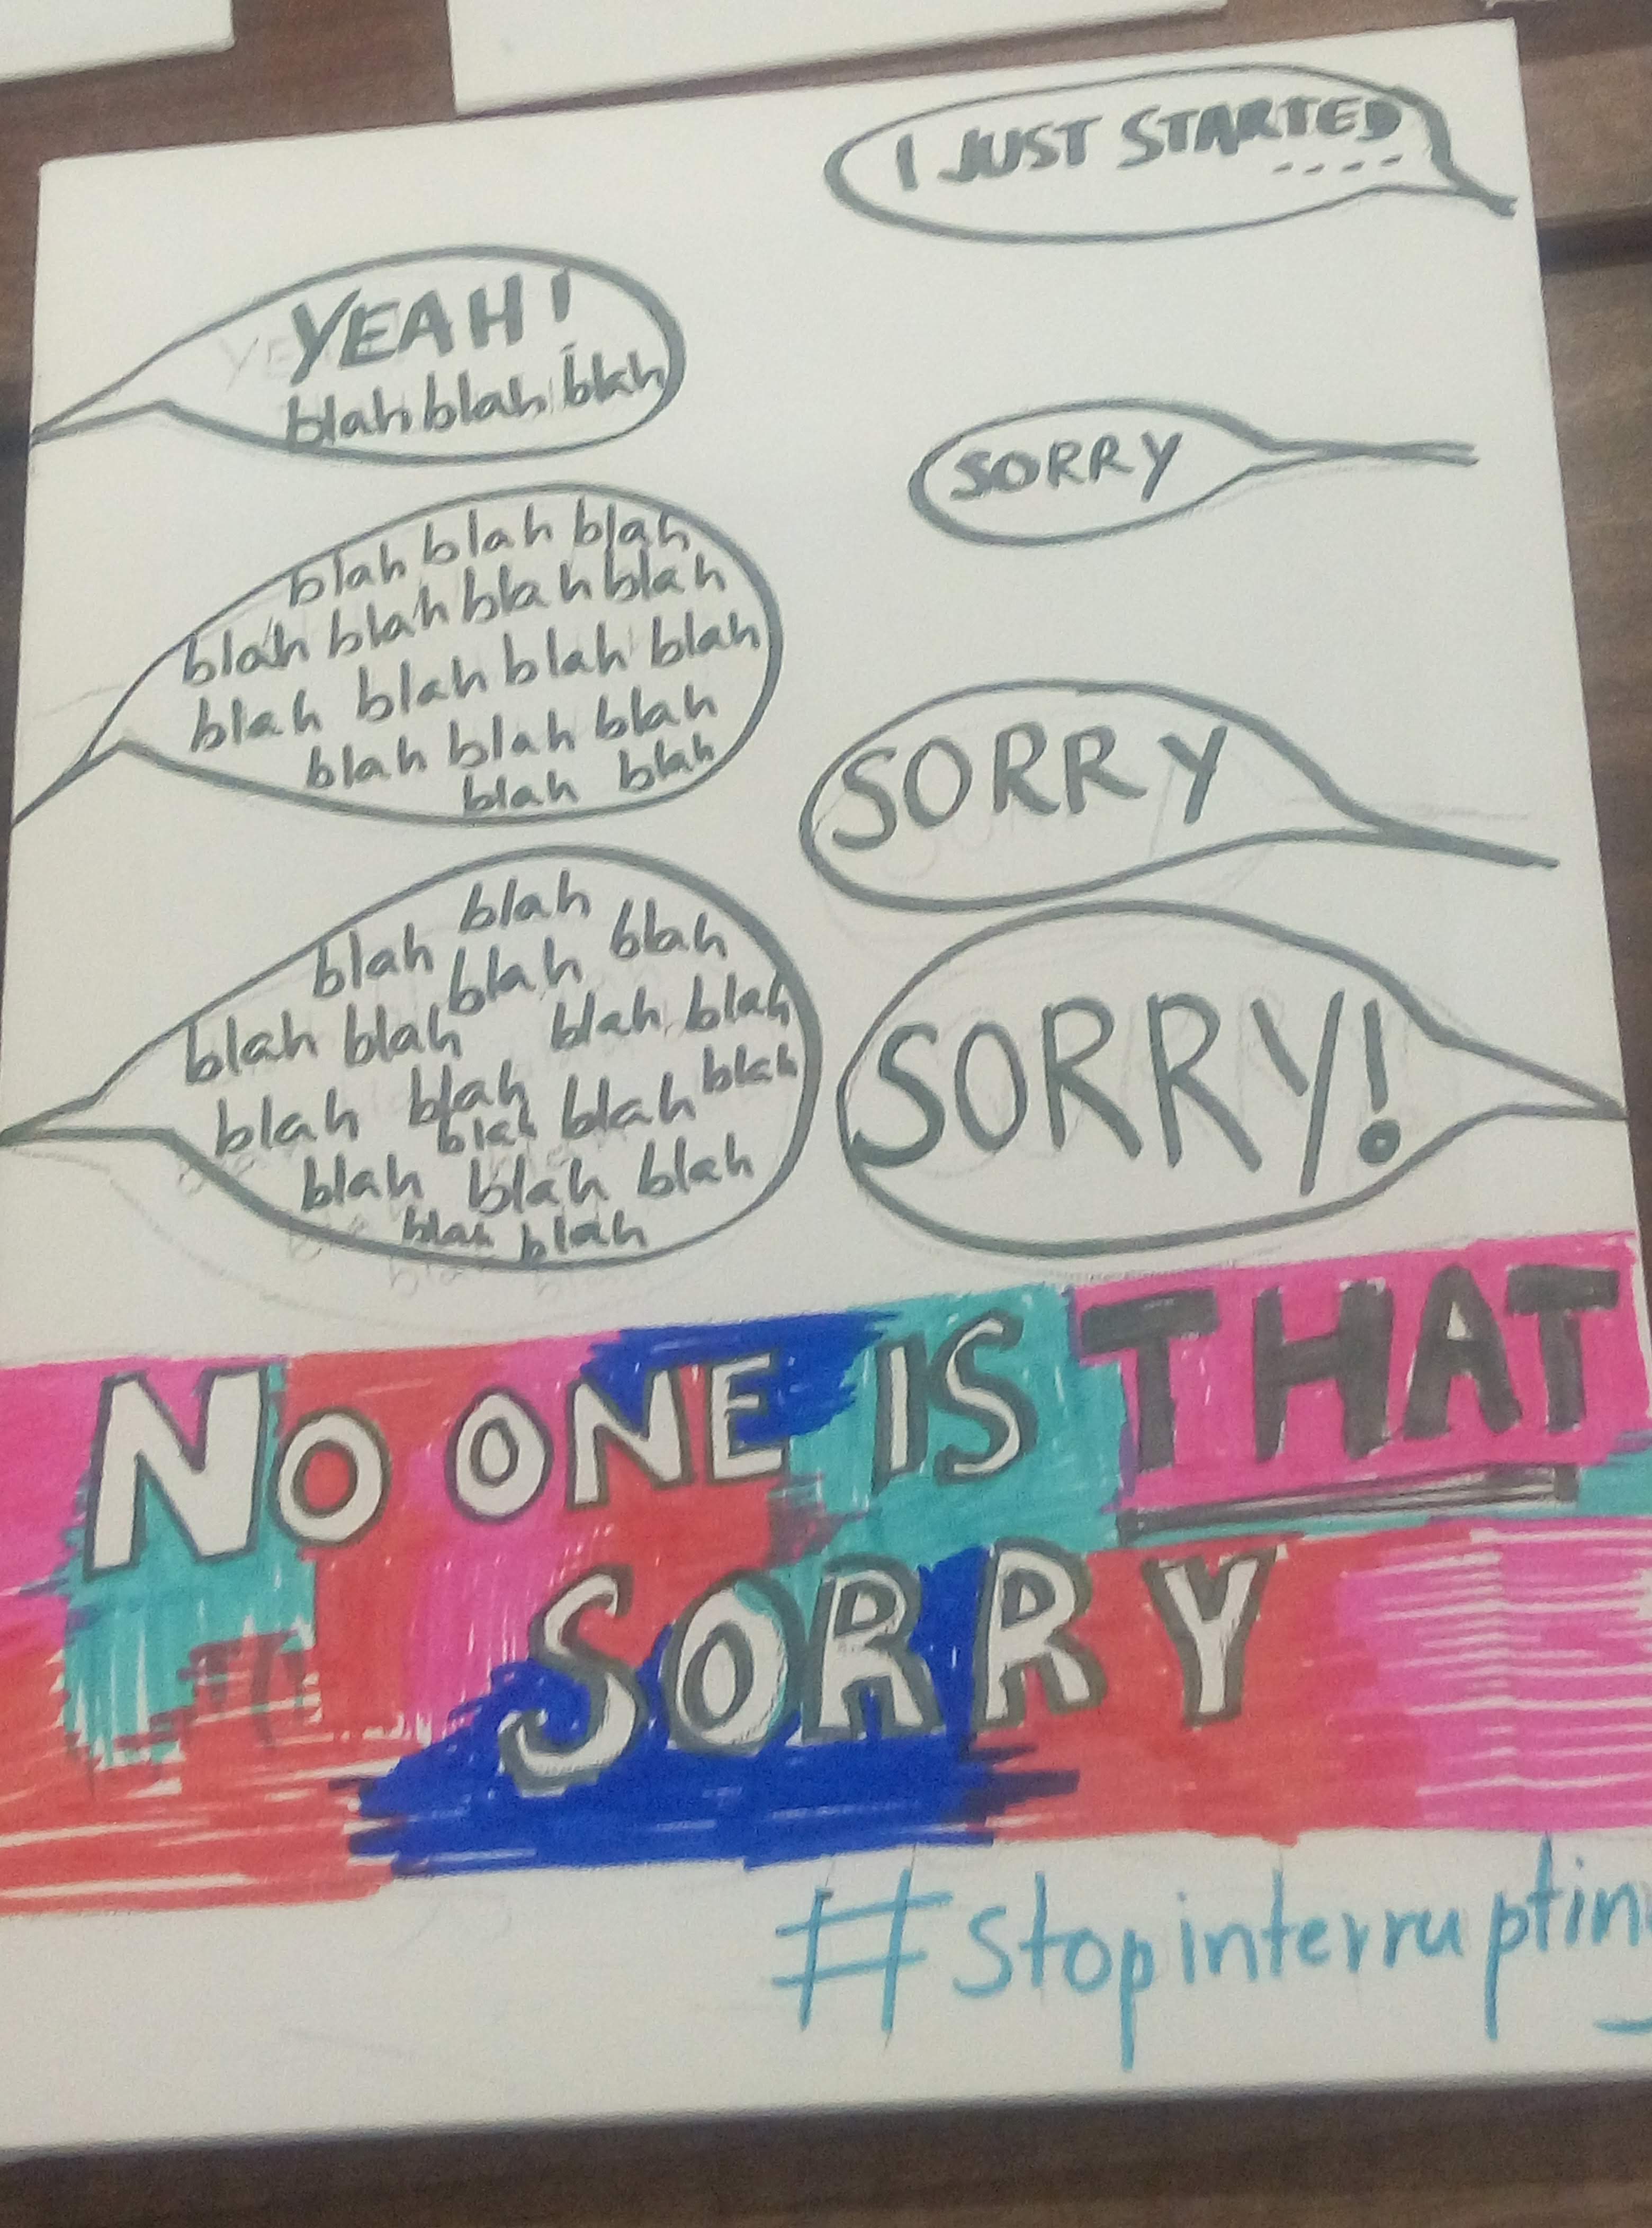 I JUST STARTED
----
YEAH!
blah blah blah
SORRY
blah blah blah
blah blah blah blah
blah blah blah blah
blah blah blah
blah blah
SORRY
blah
blah blah blah
blah blah blah blah
blah blah blah blah
blah
blah blah blah
blah blah
SORRY!
NO ONE IS THAT
SORRY
#stopinterrupting